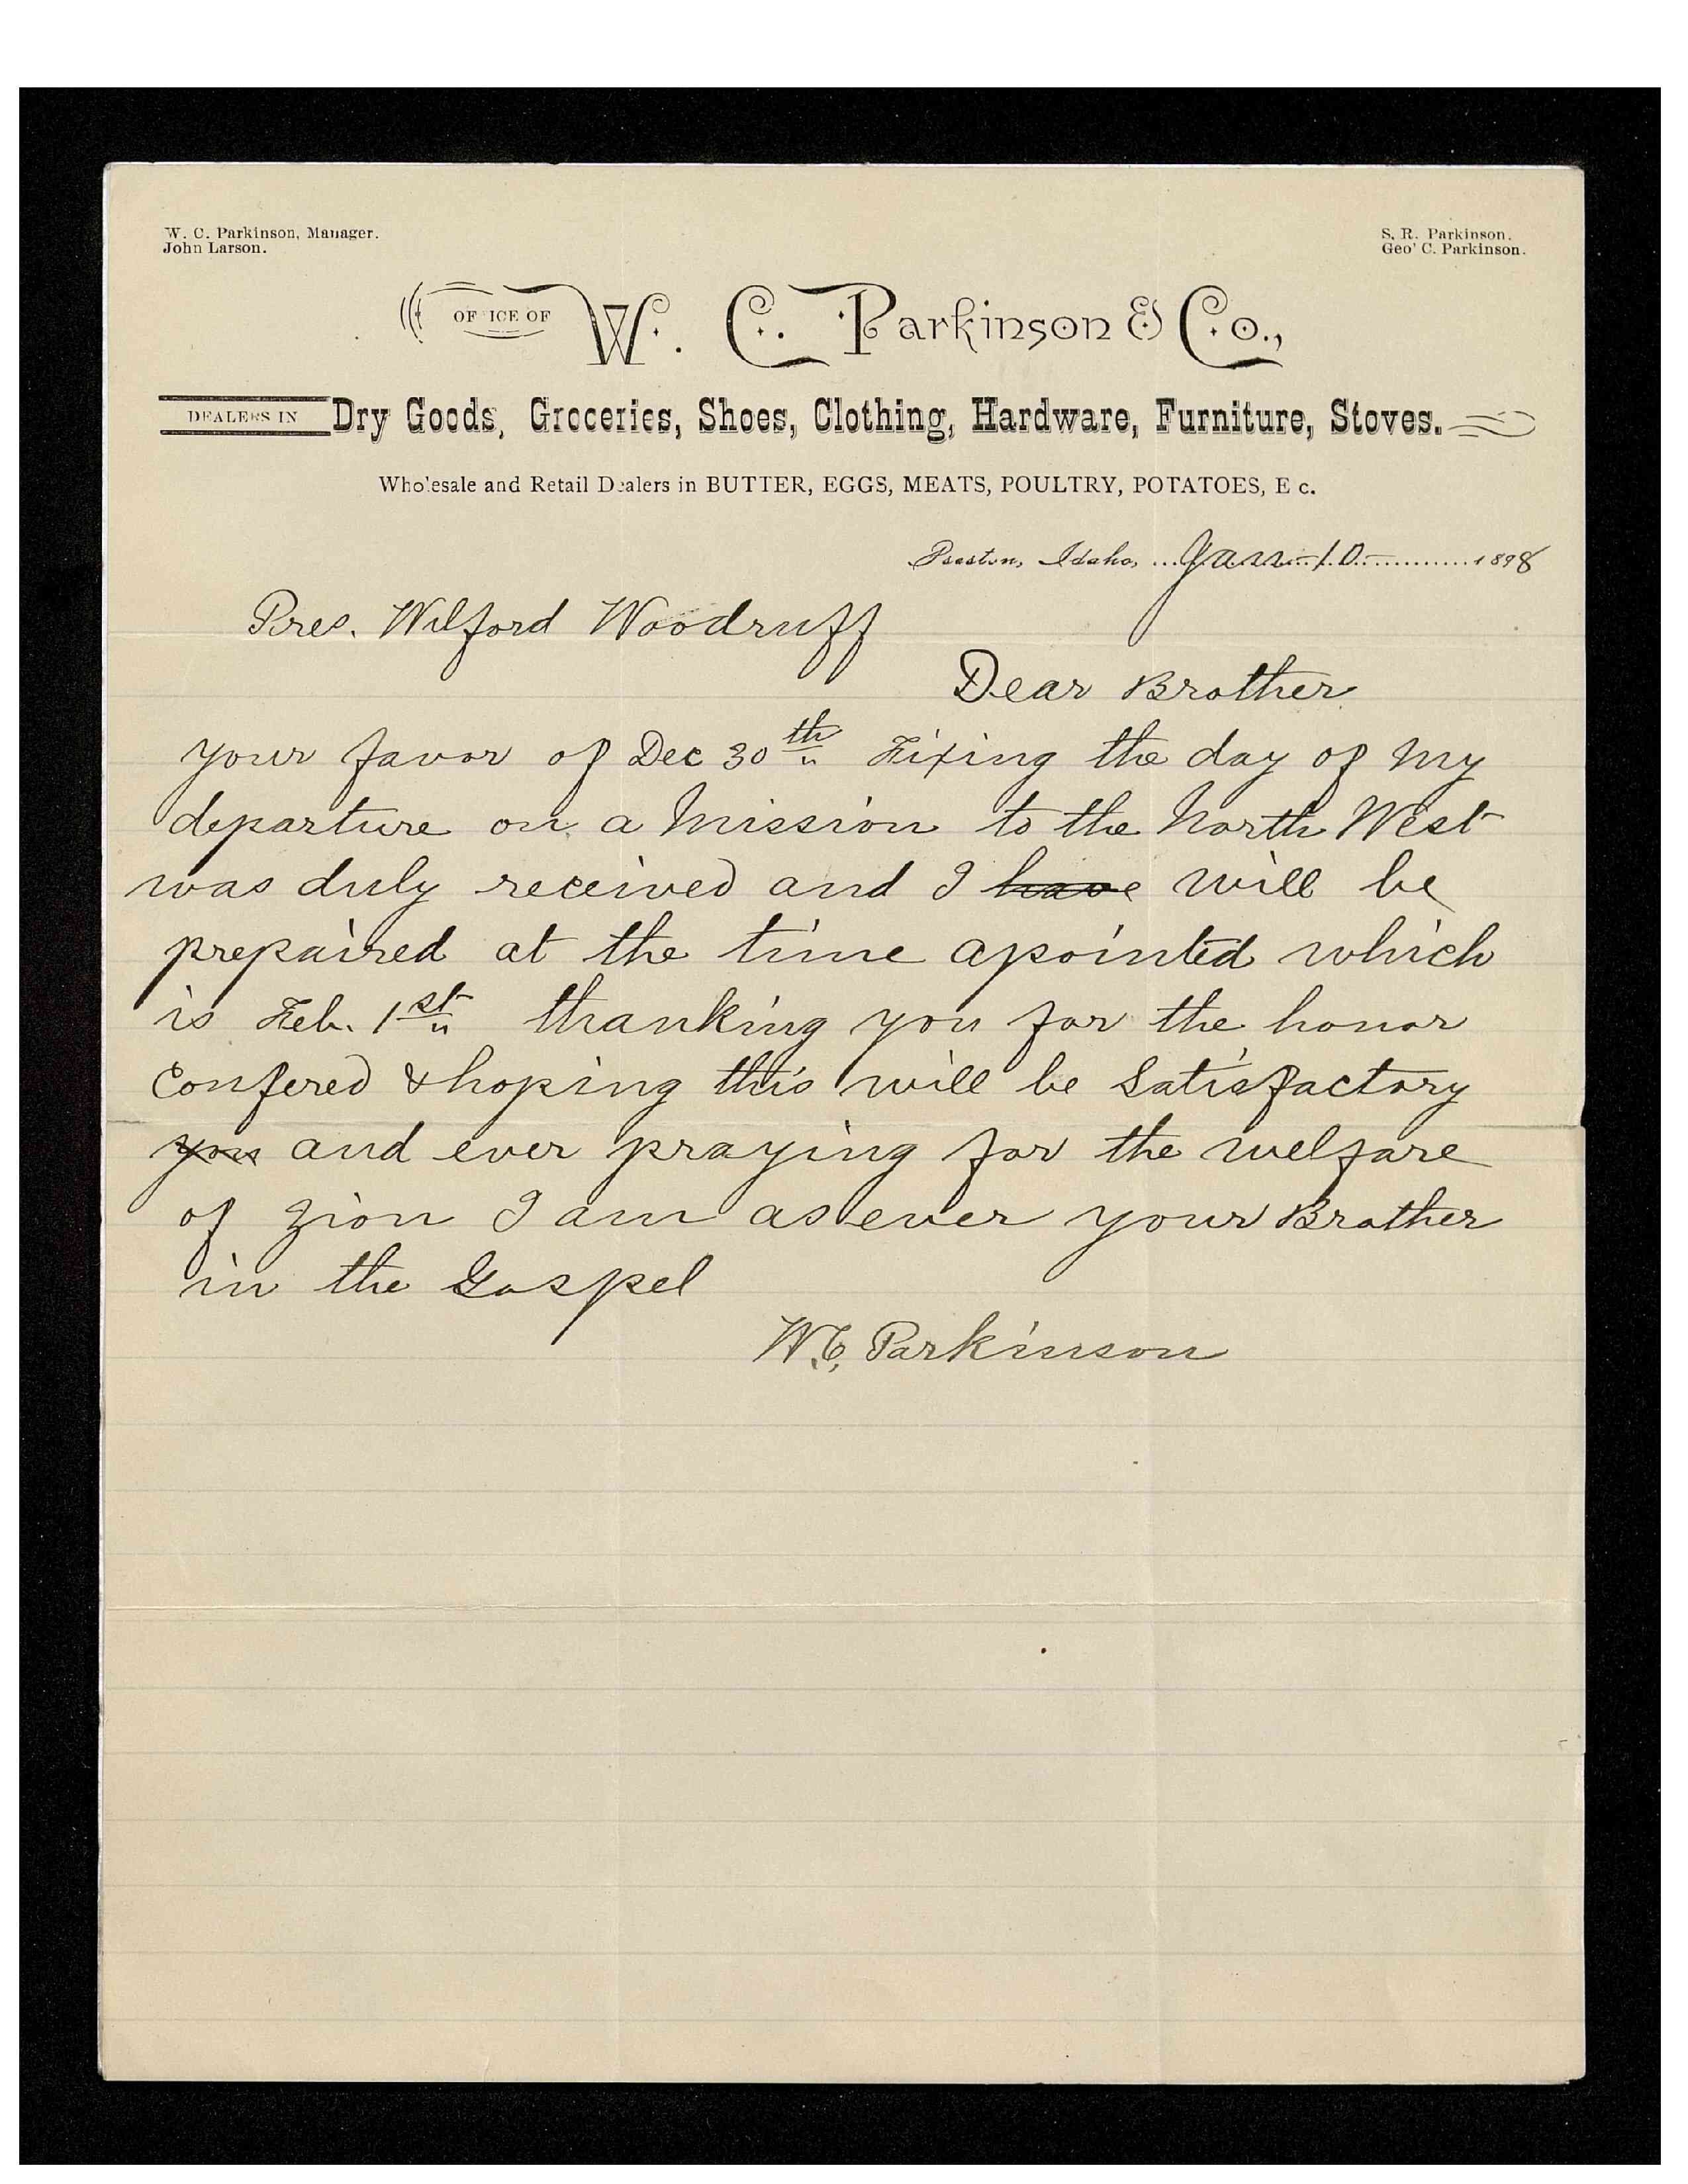 W. C. Parkinson, Manager.
John Larson.
S. R. Parkinson.
Geo' C. Parkinson.
OF ICE OF W. C. Parkinson & Co.,
DEALERS IN Dry Goods, Groceries, Shoes, Clothing, Hardware, Furniture, Stoves.
Wholesale and Retail Dealers in BUTTER, EGGS, MEATS, POULTRY, POTATOES, E c.
Preston, Idaho, Jan 10 1898
Pres. Wilford Woodruff
Dear Brother
your favor of Dec 30th Fixing the day of my
departure on a Mission to the North West
was duly received and I have will be
prepaired at the time apointed which
is Feb. 1st thanking you for the honor
confered & hoping this will be Satisfactory
you and ever praying for the welfare
of Zion I am as ever your Brother
in the Gospel
W. C. Parkinson